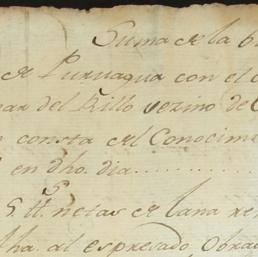 Suma de la
de Puruagua con el
del Villo vezino de
consta del Conocim
en dho. dia..........
netas de lana
ha. al espresado Obra